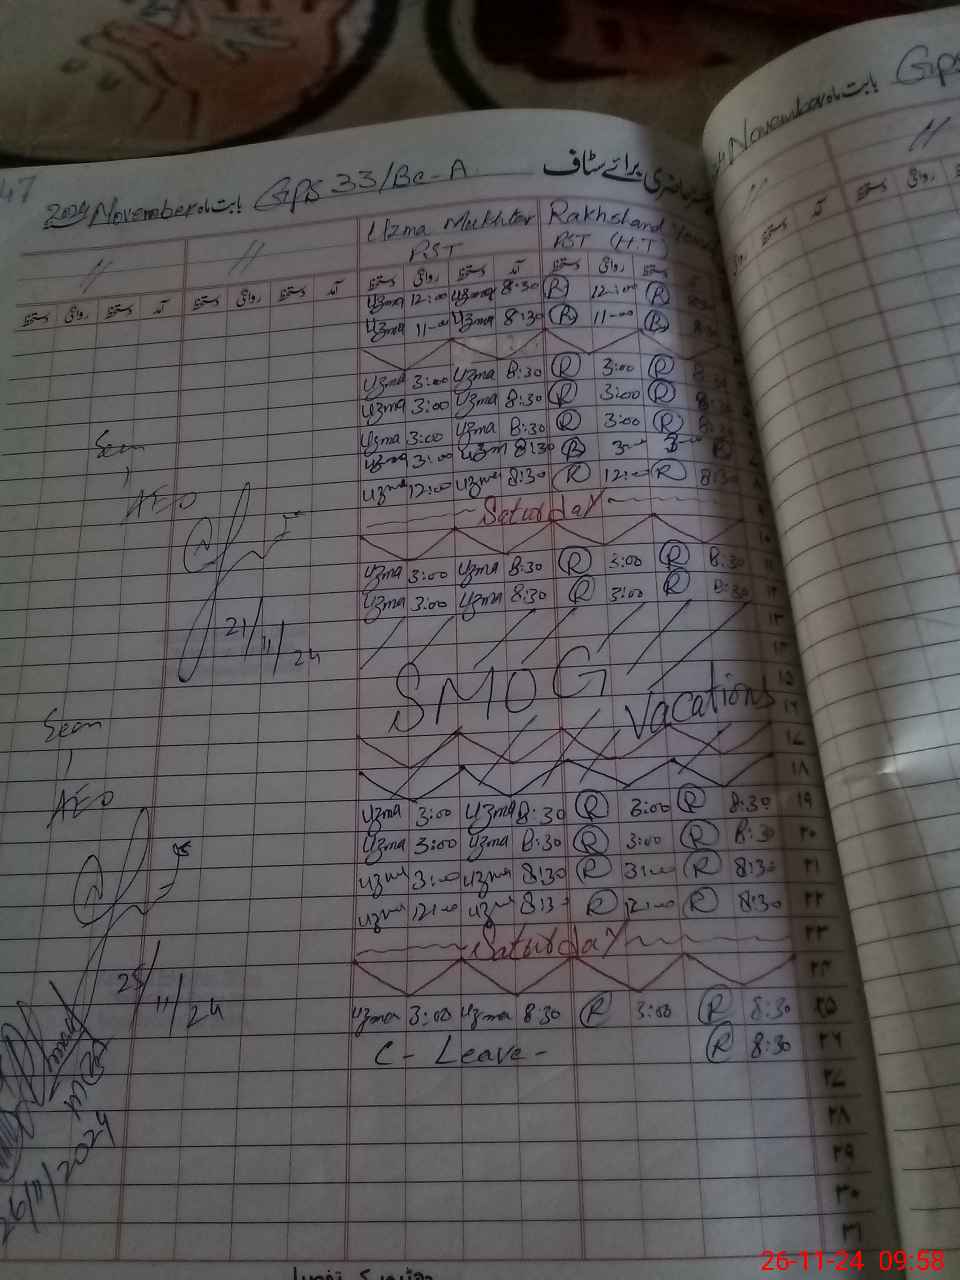 47
2024 November بابت ماہ GPS 33/Bc-A حاضری برائے سٹاف
November بابت ماہ GPS
Uzma Mukhtar Rakhshand
PST PST (H.T)
دستخط روانگی دستخط آمد دستخط روانگی دستخط آمد دستخط روانگی دستخط آمد دستخط روانگی دستخط
Uzma 12:00 Uzma 8:30 R 12:00 R 8:30
Uzma 11-00 Uzma 8:30 R 11-00 R 8:30
Uzma 3:00 Uzma 8:30 R 3:00 R
Uzma 3:00 Uzma 8:30 R 3:00 R
Uzma 3:00 Uzma 8:30 R 3:00 R
Seen
Uzma 3:00 Uzma 8:30 R
Uzma 12:00 Uzma 8:30 R 12:00 R 8:30
AEO
Saturday
۱۰
Uzma 3:00 Uzma 8:30 R 3:00 R 8:30 ۱۱
Uzma 3:00 Uzma 8:30 R 3:00 R 8:30 ۱۲
21/11/24
۱۳
۱۴
SMOG Vacations
۱۵
۱۶
Seen
۱۷
۱۸
AEO
Uzma 3:00 Uzma 8:30 R 3:00 R 8:30 ۱۹
Uzma 3:00 Uzma 8:30 R 3:00 R 8:30 ۲۰
Uzma 3:00 Uzma 8:30 R 3:00 R 8:30 ۲۱
Uzma 12:00 Uzma 8:30 R 12:00 R 8:30 ۲۲
Saturday ۲۳
۲۴
25/11/24
Uzma 3:00 Uzma 8:30 R 3:00 R 8:30 ۲۵
C- Leave- R 8:30 ۲۶
۲۷
۲۸
۲۹
۳۰
۳۱
26/11/2024
26-11-24 09:58